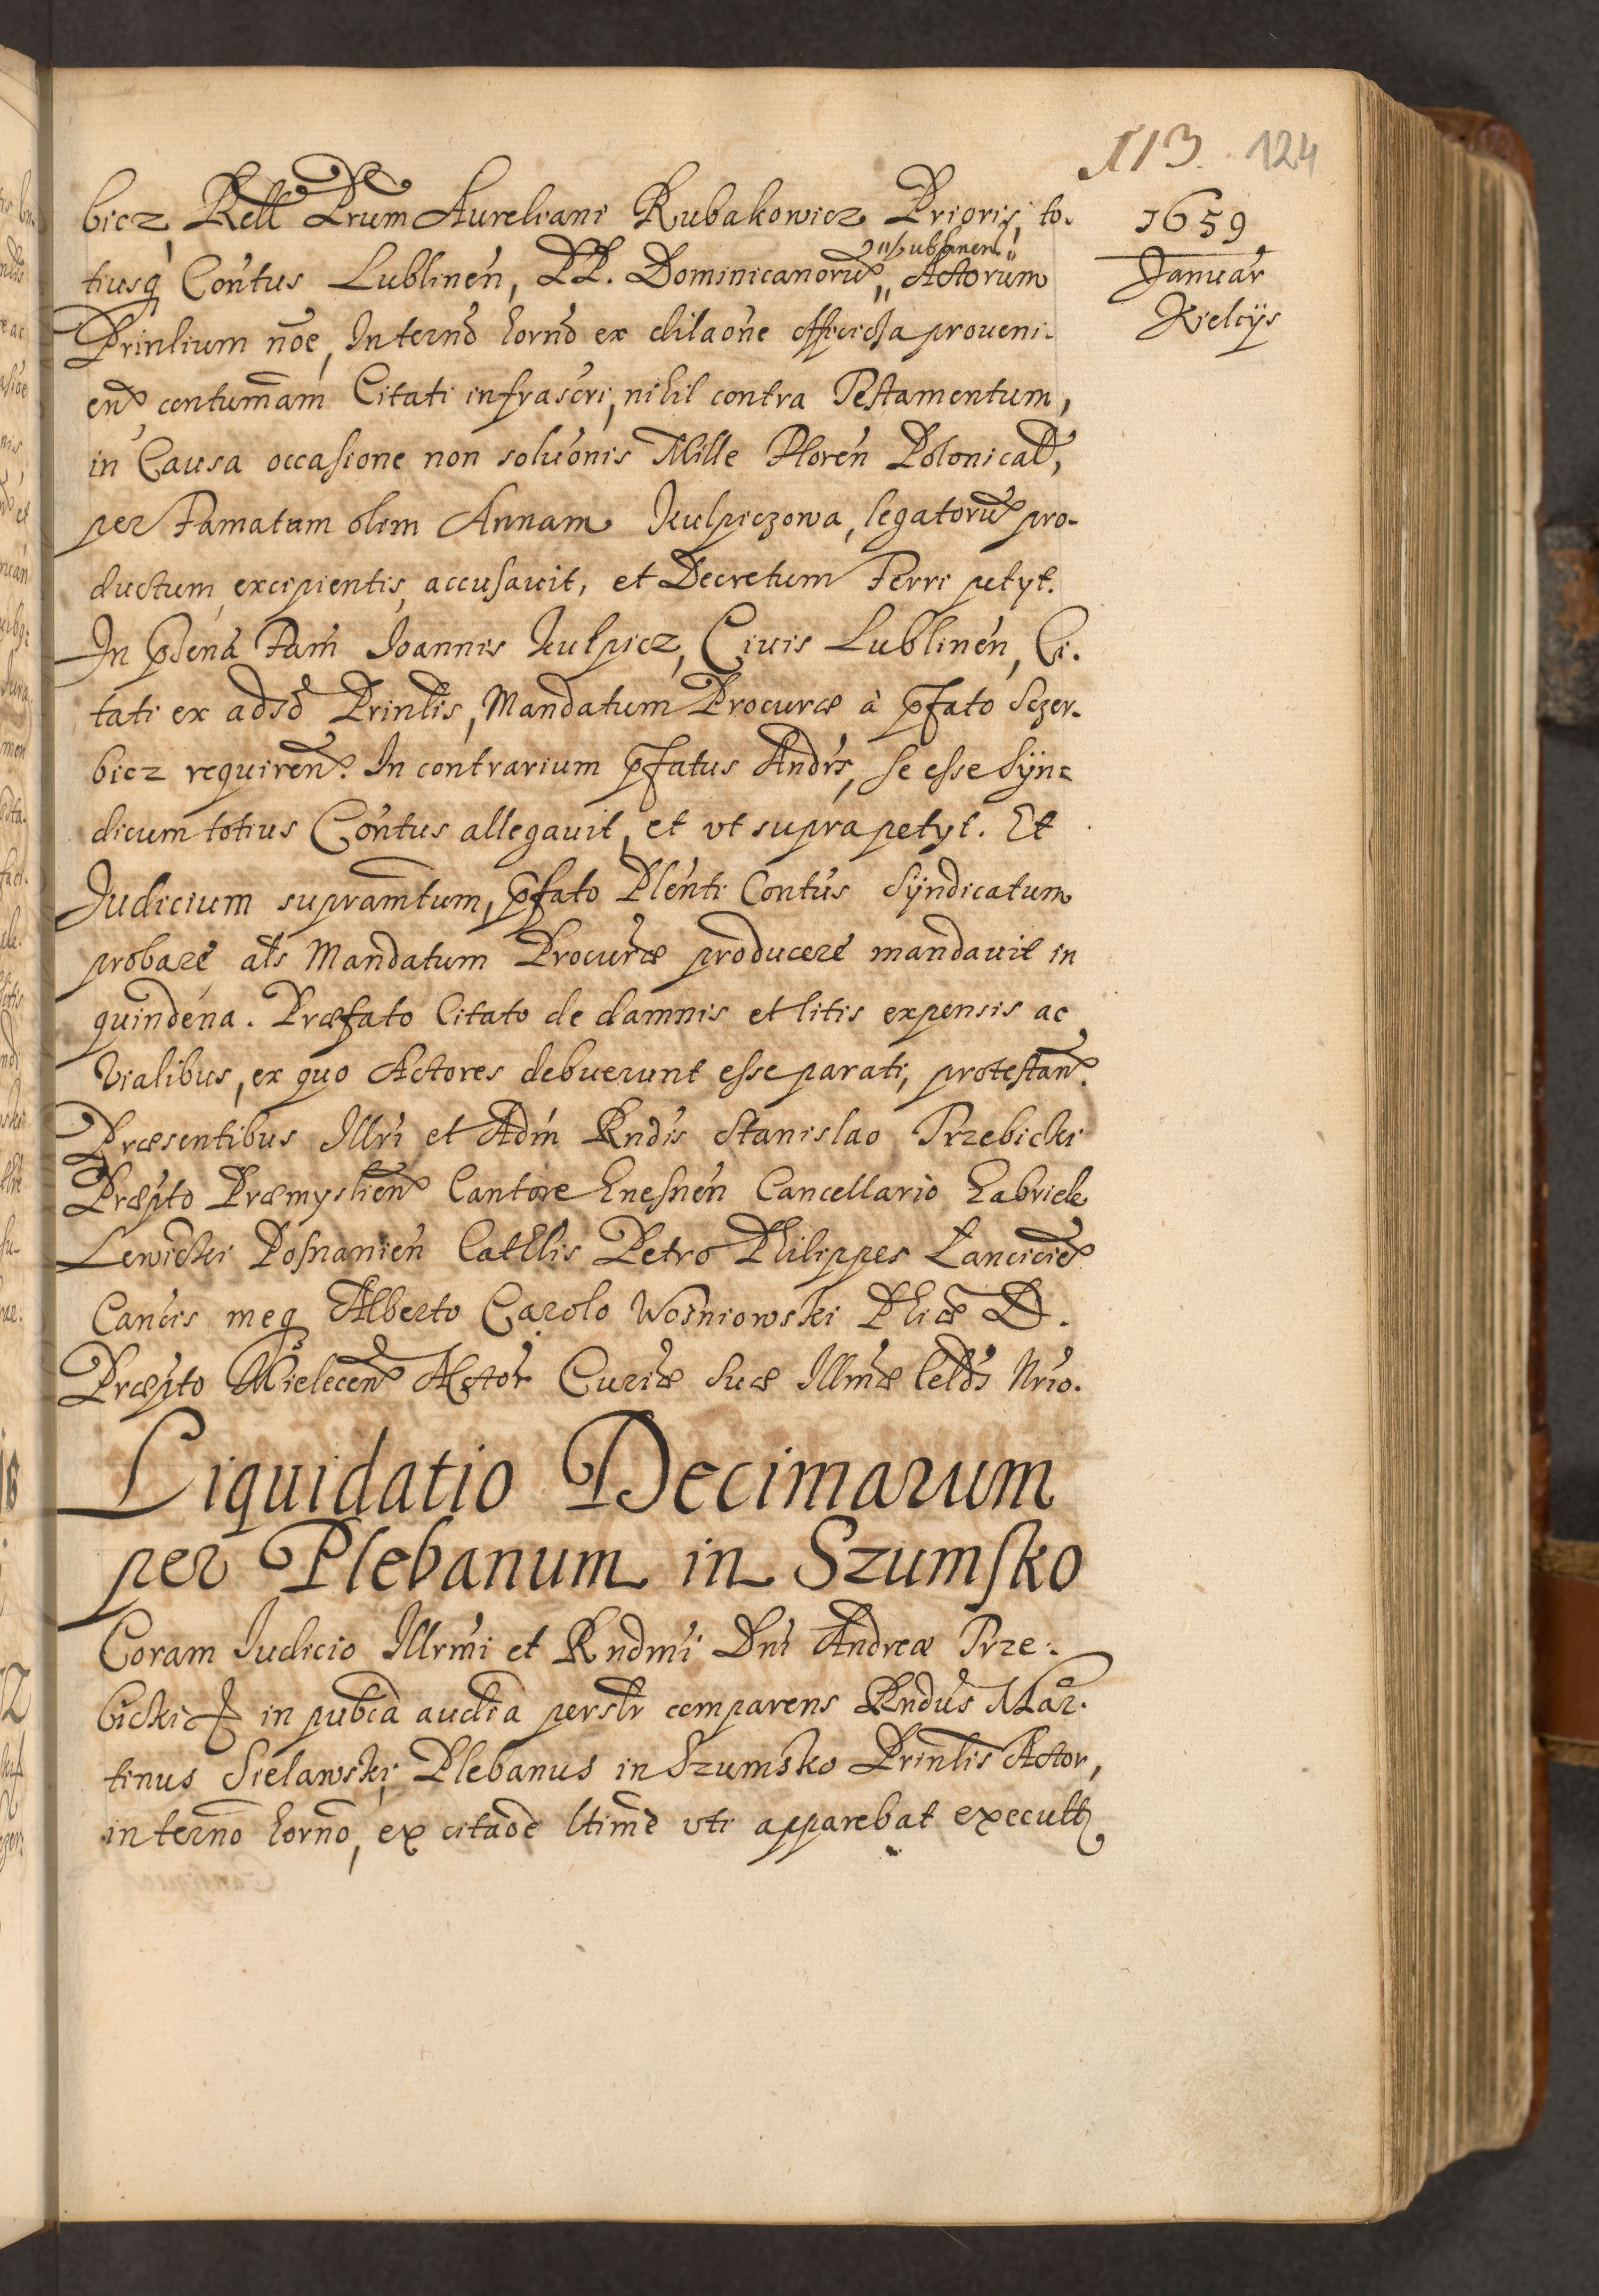 113. 124
1659
Januar
Kielcÿs
bicz, Rell Prum Aureliani Rubakowicz Prioris, to-
tiusq Contus Lublinen, PP. Dominicanorum, Actorum
Prinlium noe, In termo horno ex dilaone officiosa proveni-
en contumam Citati infrascri, nihil contra Testamentum,
in Causa occasione non soluonis Mille Floren Polonical,
per Famatam olim Annam Kulpiczowa, legatorum pro-
ductum, excipientis, accusauit, et Decretum Ferri petyt.
In psena Fam Joannis Kulpicz, Ciuis Lublinen, Ci-
tati ex adso Prinlis, Mandatum Procuræ à pfato Sczer-
bicz requiren. In contrarium pfatus Andrs, se esse Syn-
dicum totius Contus allegauit, et vt supra petyt. Et
Judicium supramtum, pfato Plenti Contus Syndicatum
probare, als Mandatum Procuræ producere mandauit in
quindena. Præfato Citato de damnis et litis expensis ac
vialibus, ex quo Actores debuerunt esse parati, protestan.
Præsentibus Illri et Adm Rndis Stanislao Trzebicki
Præpto Præmyslien Cantore Gnesnen Cancellario Gabriele
Lewicki Posnanien Cathlis Petro Philippes Lancicien
Cancis meq Alberto Carolo Wosniowski Phiæ D.
Præpto Mielecen Actor Curiæ Suæ Illmæ Celds Nrio.
Liquidatio Decimarum
per Plebanum in Szumsko
Coram Judicio Illrmi et Rndmi Dni Andreæ Trze-
bicki in pubca audia persłr comparens Rndus Mar-
tinus Sielawski, Plebanus in Szumsko Prinlis Actor,
in termo horno, ex citaoe ltime vti apparebat executa